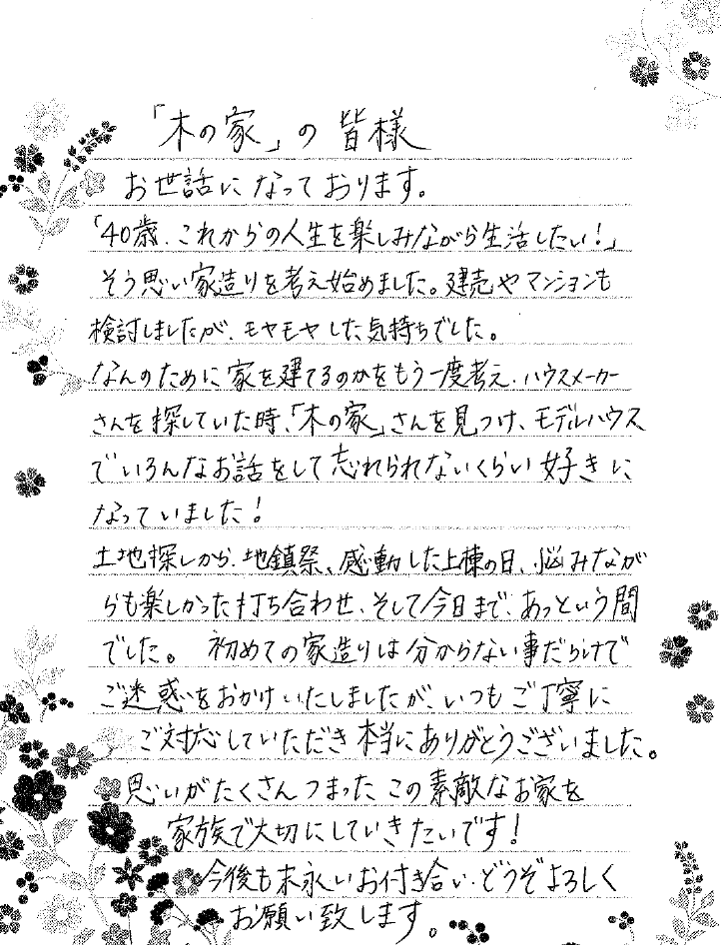 「木の家」の皆様
お世話になっております。
「40歳、これからの人生を楽しみながら生活したい！」
そう思い家造りを考え始めました。建売やマンションも
検討しましたが、モヤモヤした気持ちでした。
なんのために家を建てるのかをもう一度考え、ハウスメーカー
さんを探していた時、「木の家」さんを見つけ、モデルハウス
でいろんなお話をして忘れられないくらい好きに
なっていました！
土地探しから、地鎮祭、感動した上棟の日、悩みなが
らも楽しかった打ち合わせ、そして今日まで、あっという間
でした。 初めての家造りは分からない事だらけで
ご迷惑をおかけいたしましたが、いつもご丁寧に
ご対応していただき本当にありがとうございました。
思いがたくさんつまったこの素敵なお家を
家族で大切にしていきたいです！
今後も末永いお付き合い、どうぞよろしく
お願い致します。